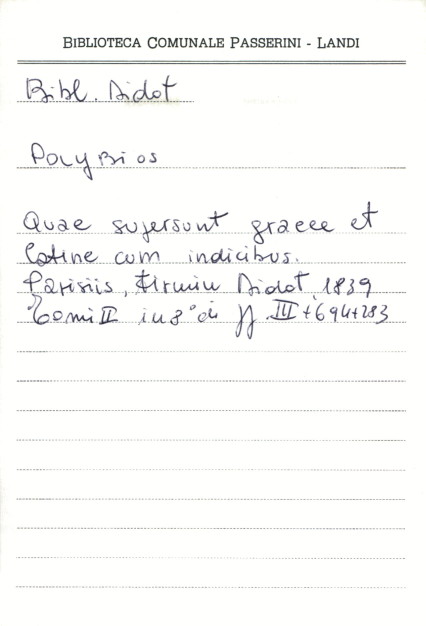 BIBLIOTECA COMUNALE PASSERINI - LANDI
Bibl. Didot
Polybios
Quae supersunt graece et
latine cum indicibus.
Parisiis, Firmin Didot, 1839
Tomi II in 8° di pp. III+694+283